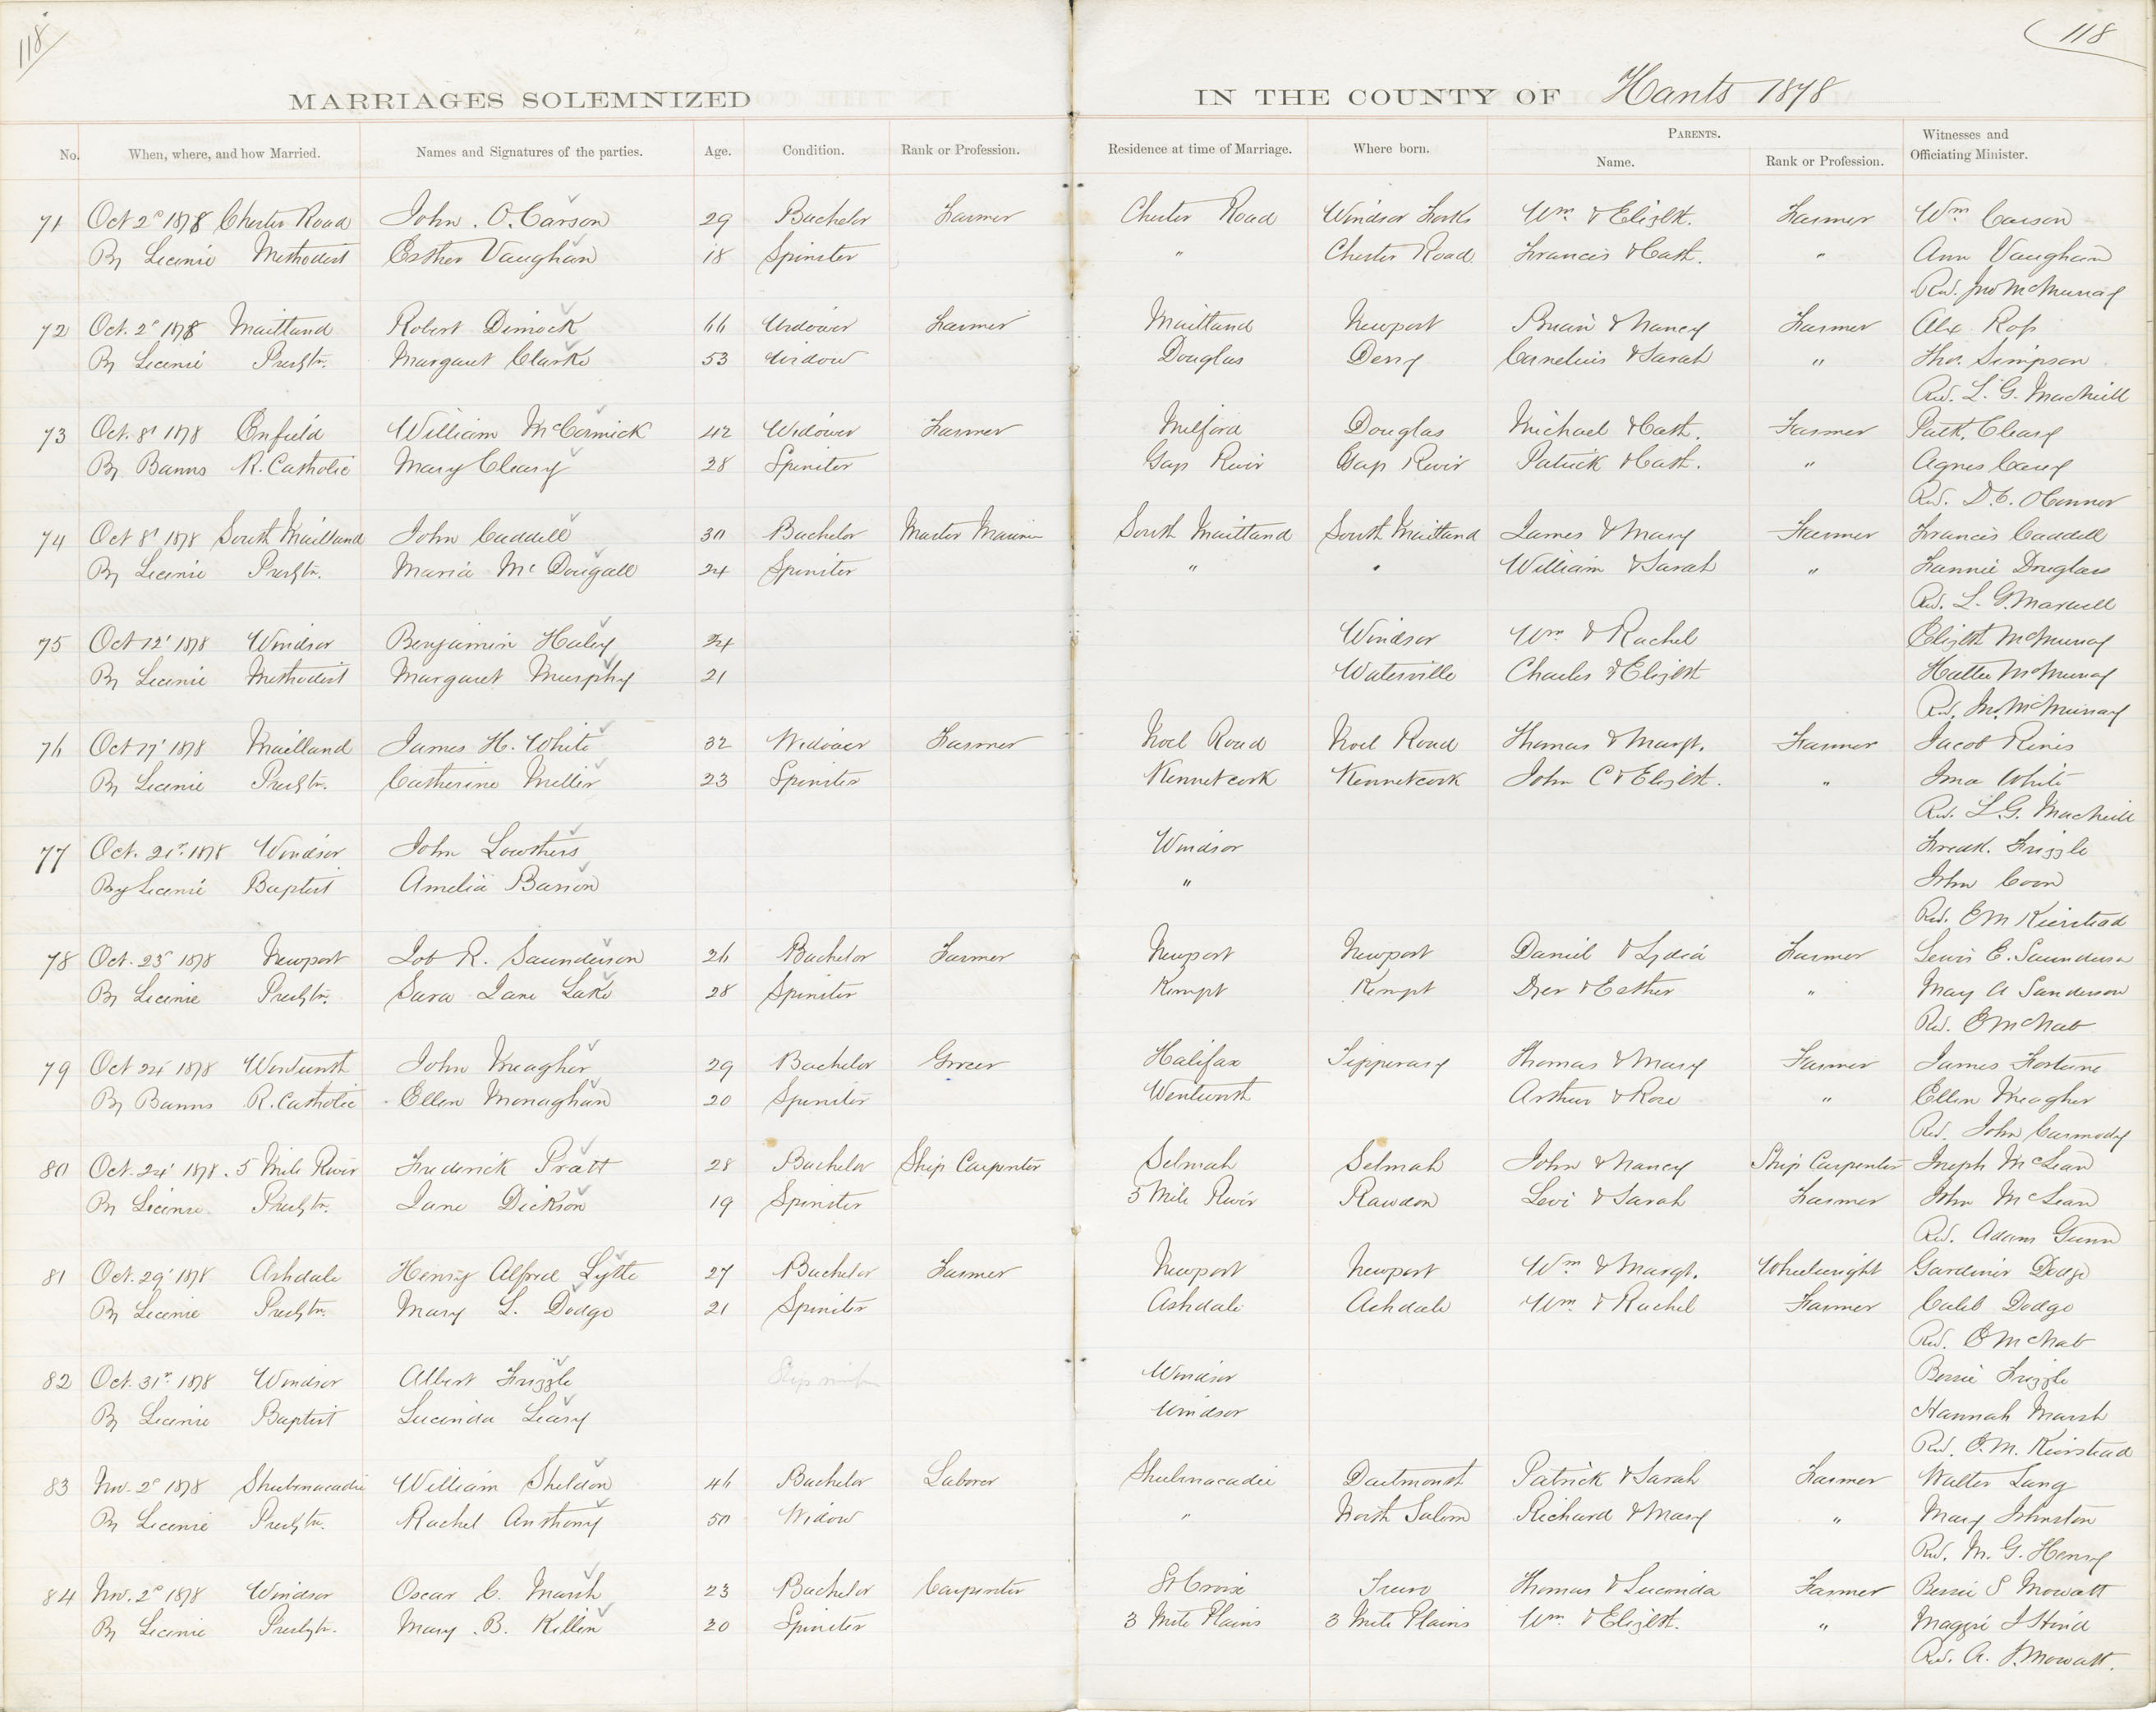 118
118
MARRIAGES SOLEMNIZED IN THE COUNTY OF Hants 1878
No. When, where, and how Married. Names and Signatures of the parties. Age. Condition. Rank or Profession. Residence at time of Marriage. Where born. PARENTS. Name. Rank or Profession. Witnesses and Officiating Minister.
71 Oct 2d 1878 Chester Road John. O. Carson 29 Bachelor Farmer Chester Road Windsor Forks Wm & Elizbt. Farmer Wm Carson
By License Methodist Esther Vaughan 18 Spinster " Chester Road Francis & Cath. " Ann Vaughan
Rev. Jno McMurray
72 Oct. 2d 1878 Maitland Robert Dimock 66 Widower Farmer Maitland Newport & Nancy Farmer Alex Ross
By License Presbtn. Margaret Clarke 53 Widow Douglas Derry Cornelius & Sarah " Thos. Simpson
Rev. L. G. MacNeill
73 Oct. 8th 1878 Enfield William McCormick 42 Widower Farmer Milford Douglas Michael & Cath. Farmer Patk. Cleary
By Banns R. Catholic Mary Cleary 28 Spinster Gay's River Gay's River Patrick & Cath. " Agnes
Rev. D. C. O'Connor
74 Oct 8th 1878 South Maitland John Caddell 30 Bachelor Master Mariner South Maitland South Maitland James & Mary Farmer Francis Caddell
By License Presbtn. Maria McDougall 24 Spinster " " William & Sarah " Fannie Douglass
Rev. L. G.
75 Oct 12th 1878 Windsor Benjamin Haley 24 Windsor Wm & Rachel Elizbt McMurray
By License Methodist Margaret Murphy 21 Waterville Charles & Elizbt McMurray
Rev. Jno. McMurray
76 Oct 17th 1878 Maitland James H. White 32 Widower Farmer Noel Road Noel Road Thomas & Margt. Farmer Jacob
By License Presbtn. Catherine Miller 23 Spinster Kennetcook Kennetcook John C & Elizbt. " White
Rev. L. G. MacNeill
77 Oct. 21st 1878 Windsor John Lowthers Windsor Fredk. Frizzle
By License Baptist Amelia Barron " John Coon
Rev. E M Kierstead
78 Oct. 23d 1878 Newport Job R. Saunderson 26 Bachelor Farmer Newport Newport Daniel & Lydia Farmer Lewis E. Saunderson
By License Presbtn. Sara Jane Lake 28 Spinster Kempt Kempt & Esther " May A Sanderson
Rev. E McNab
79 Oct 24th 1878 Wentworth John Meagher 29 Bachelor Grocer Halifax Tipperary Thomas & Mary Farmer James Fortune
By Banns R. Catholic Ellen Monaghan 20 Spinster Wentworth Arthur & Rose " Ellen Meagher
Rev. John Carmody
80 Oct. 24th 1878. 5 Mile River Frederick Pratt 28 Bachelor Ship Carpenter Selmah Selmah John & Nancy Ship Carpenter Joseph McLean
By License Presbtn. Jane Dickson 19 Spinster 5 Mile River Rawdon Levi & Sarah Farmer John McLean
Rev. Adam Gunn
81 Oct. 29th 1878 Ashdale Henry Alfred Lyttle 27 Bachelor Farmer Newport Newport Wm & Margt. Wheelwright Gardiner Dodge
By License Presbtn. Mary L. Dodge 21 Spinster Ashdale Ashdale Wm. & Rachel Farmer Caleb Dodge
Rev. E McNab
82 Oct. 31st 1878 Windsor Albert Frizzle Windsor Bessie Frizzle
By License Baptist Lucinda Leary Windsor Hannah Marsh
Rev. E. M. Kierstead
83 Nov. 2d 1878 Shubenacadie William Sheldon 46 Bachelor Laborer Shubenacadie Dartmouth Patrick & Sarah Farmer Walter Lang
By License Presbtn. Rachel Anthony 50 Widow " North Salem Richard & Mary " Mary Johnston
Rev. M. G. Henry
84 Nov. 2d 1878 Windsor Oscar C. Marsh 23 Bachelor Carpenter St Croix Truro Thomas & Lucinda Farmer Bessie S Mowatt
By License Presbtn. Mary. B. Killen 20 Spinster 3 Mile Plains 3 Mile Plains Wm. & Elizbt. " Maggie J Hind
Rev. A. J. Mowatt.